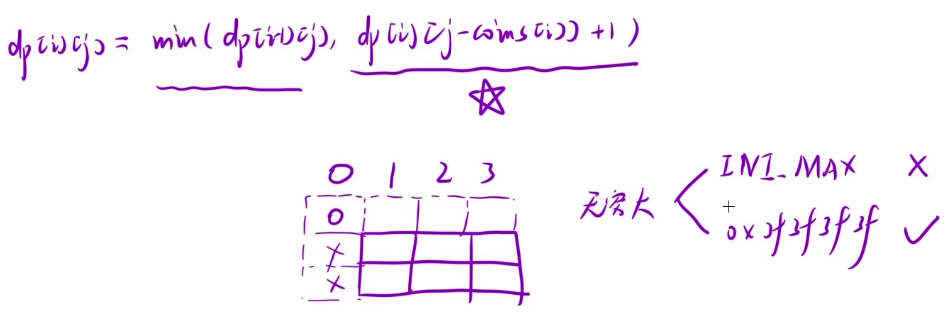 dp[i][j] = min( dp[i-1][j], dp[i][j-coins[i]] + 1 )
0 1 2 3
0
x
x
无穷大
INT_MAX ×
0x3f3f3f3f ✓